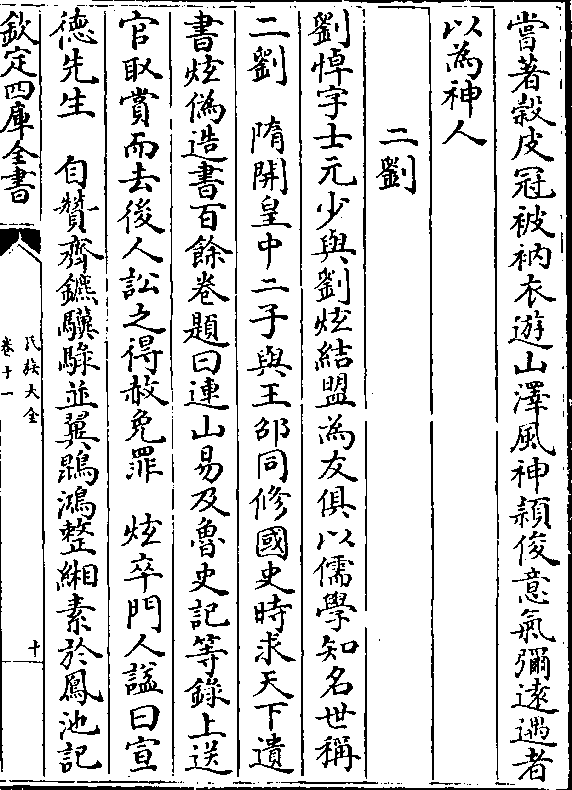 嘗著榖皮冠被衲衣遊山澤風神頴俊意氣彌遠遇者
以為神人
二劉
劉焯字士元少與劉炫結盟為友俱以儒學知名世稱
二劉 隋開皇中二子與王邵同修國史時求天下遺
書炫偽造書百餘卷題曰連山易及魯史記等錄上送
官取賞而去後人訟之得赦免罪 炫卒門人諡曰宣
德先生 自贊齊鑣驥騄並翼鵾鴻整緗素於鳳池記
欽定四庫全書
氏族大全
卷十一
十